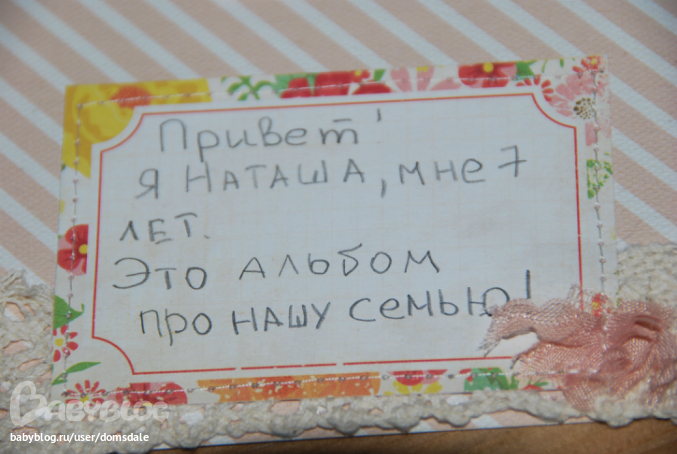 Привет!
Я НАТАША, МНЕ 7
ЛЕТ.
ЭТО АЛЬБОМ
ПРО НАШУ СЕМЬЮ!
BABYBLOG
babyblog.ru/user/domsdale